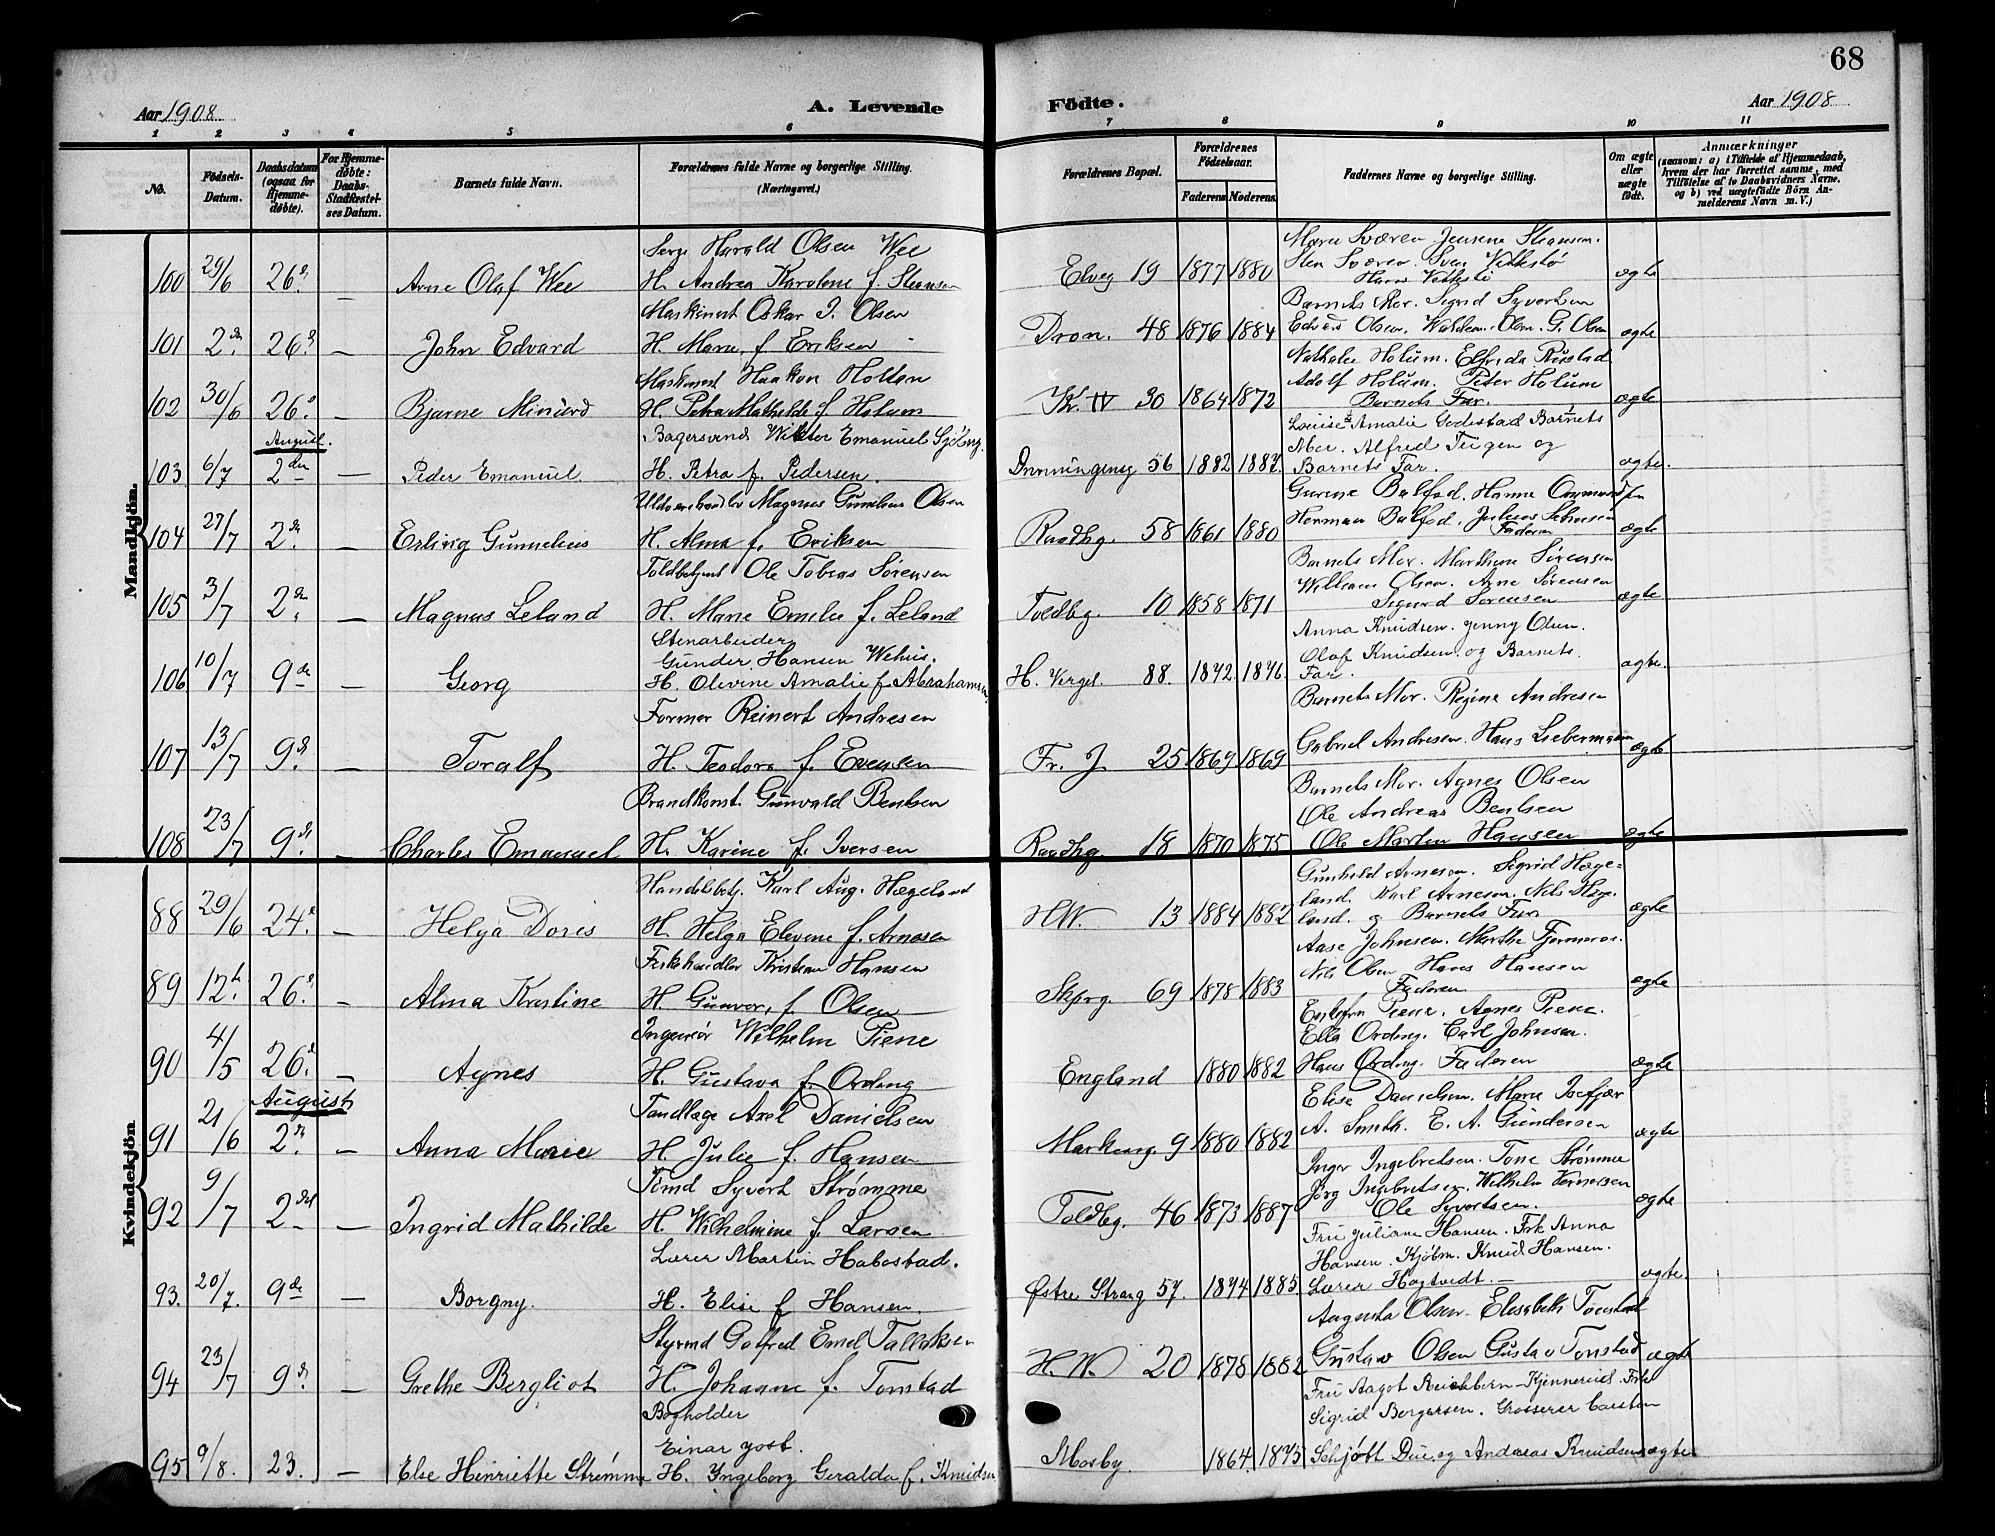 68
Aar 1908
A. Levende Födte.
Aar 1908
1 2 3 4 5 6 7 8 9 10 11
No.
Fødsels-Datum.
Daabsdatum (ogsaa for Hjemme-døbte).
For Hjemme-døbte: Daabs-Stadfæstel-ses Datum.
Barnets fulde Navn.
Forældrenes fulde Navne og borgerlige Stilling. (Næringsvei.)
Forældrenes Bopæl.
Forældrenes Fødselsaar.
Faderens Moderens
Faddernes Navne og borgerlige Stilling.
Om ægte eller uægte født.
Anmærkninger
(saasom: a) i Tilfælde af Hjemmedaab, hvem der har forrettet samme, med Tilføielse af to Daabsvidners Navne, og b) ved uægtefødte Börn An-melderens Navn m. V.)
Mandkjön.
Harald Olsen Wee
100 29/6 26d. — Arne Olaf Wee H. Andrea Karolene f. Stiansen Elveg 19 1877 1880 ægte
Maskinist Oskar J. Olsen
Barnets Mor. Sigrid Syvertsen
101 2den 26d. — John Edvard H. Marie, f. Eriksen Dron. 48 1876 1884 ægte
Maskinist Haakon Holten
Nathalie Holum. Elfrida Rustad
Adolf Holum. Peter Holum
102 30/6 26d. — Bjarne Minurd H. Petra Mathilde f. Holum Kr. IV 30 1864 1872 Barnets Far. ægte
August.
Bagersvend Wiktor Emanuel Sjöberg
Louise Amalie Godestad Barnets
Mor. Alfred Teigen og
103 6/7 2den — Peder Emanuel H. Petra f. Pedersen. Dronningensg 56 1882 1887 Barnets Far. ægte.
Magnus Gunelius Olsen
104 27/7 2den — Erling Gunnelius H. Alma f. Eriksen Raadhg. 58 1861 1880 Faderen ægte
Toldbetjent Ole Tobias Sørensen
Barnets Mor. Marthine Sørensen
William Olsen. Arne Sørensen
105 3/7 2den — Magnus Leland H. Marie Emelie f. Leland Toldbg. 10 1858 1871 Sigurd Sørensen ægte
Stenarbeider
Gunder Hansen Wehus.
Anna Knudsen. Jenny Olsen.
Olaf Knudsen. og Barnets.
106 10/7 9de — Georg H. Olevine Amalie f. Abrahamsen H. Vergel. 88. 1872 1876 Far. ægte.
Former Reinert Andresen
Barnets Mor. Regine Andresen
107 13/7 9d. Toralf H. Teodora f. Evensen Fr. J 25 1869 1869 Gabriel Andresen. Hans Liebermann ægte
Brandkonst. Gunvald Bentsen
Barnets Mor. Agnes Olsen
Ole Andreas Bentsen
108 23/7 9d. — Charles Emanuel H. Karine f. Iversen Raadhg. 18 1870 1875 Ole Martin Hansen ægte
Kvindekjön
Handelsbetj. Karl Aug. Hægeland
Gunhild Arnesen. Sigrid Hæge-
land. Karl Arnesen. Nils Hæge
88 29/6 24d. — Helga Doris H. Helga Elevine f. Arnesen H.W. 13 1884 1882 land. og Barnets Far ægte
Fiskehandler Kristian Hansen
Aase Johnsen. Marthe Fjermeros.
Nils Olsen Hans Hansen
89 12te. 26d. — Alma Kristine H. Gunvor, f. Olsen Skprg. 69 1878 1883 Faderen ægte
Ingeniør Wilhelm Piene
Piene. Agnes Piene.
Ella Ording. Carl Johnsen.
90 4/5 26d. — Agnes H. Gustava f. Ording England 1880 1882 Hans Ording. Faderen ægte
August
Tandlæge Axel Danielsen
Elise Danielsen. Marie Isefjær
91 21/6 2den — Anna Marie H. Julie f. Hansen Markensg. 9 1880 1882 A. Smith. E. A. Gundersen ægte
Tømd Syvert Strømme
Inger Ingebretsen. Tone Strømme
Jørg Ingebretsen. Wilhelm Vernersen
92 9/7 2den — Ingrid Mathilde H. Wilhelmine f. Larsen Toldbg. 46 1873 1887 Ole Syvertsen. ægte
Lærer Martin Habostad.
Fru Juliane Hansen. Frk Anna
Hansen. Kjøbm. Knud Hansen.
93. 20/7. 9de — Borgny. H. Elise f Hansen. Østre Strang 57. 1874 1885 Lærer Hogtvedt. — ægte.
Styrmd Gotfred Emil Tallaksen
Augusta Olsen. Elisabeth Tonstad
94 23/7 9d. — Grethe Bergliot H. Johanne f. Tonstad H.W. 20 1878 1882 Gustav Olsen Gustav Tonstad ægte
Bogholder
Einar Jost.
Fru Aagot Reichborn-Kjennerud. Frk
Sigrid Bergersen. Grosserer Carsten
95 9/8. 23. — Else Henriette Strømme H. Ingeborg Geralda f. Knudsen Mosby. 1864. 1875 Schjøtt Due og Andreas Knudsen ægte.